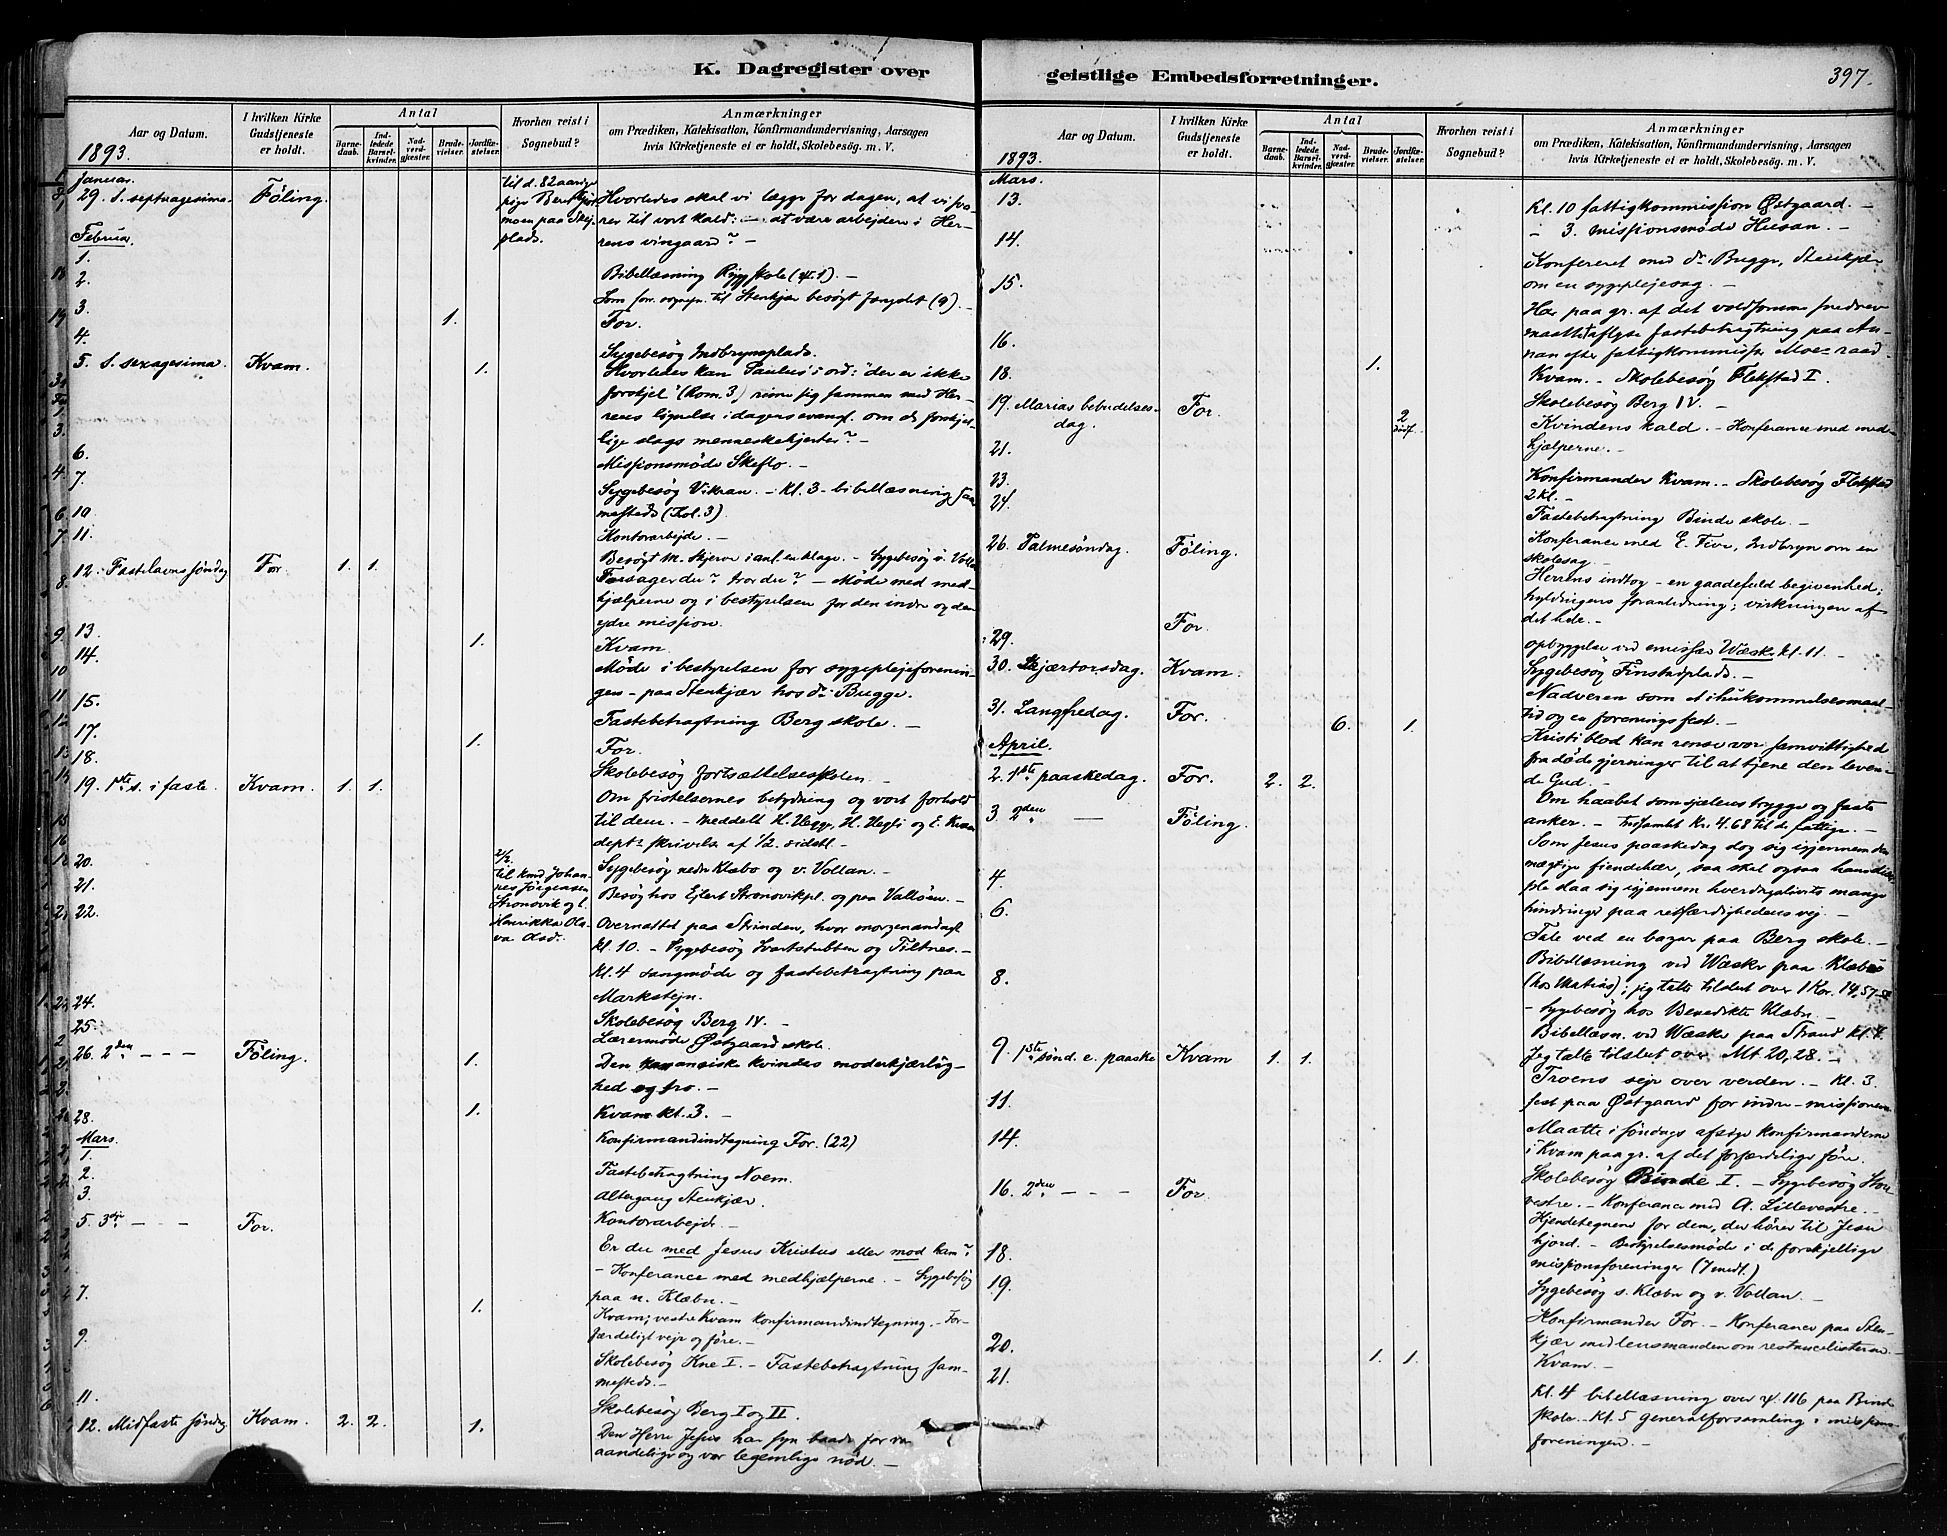 K. Dagregister over
Aar og Datum.
I hvilken Kirke
Gudstjeneste
er holdt.
Antal
Barne-
daab.
Ind-
ledede
Barsel-
kvinder.
Nad-
verd-
gjæster.
Brude-
vielser.
Jordfæ-
stelser.
Hvorhen reist i
Sognebud?
Anmærkninger
om Prædiken, Katekisation, Konfirmandundervisning, Aarsagen
hvis Kirketjeneste ei er holdt, Skolebesøg. m. V.
1893.
Januar.
29. S. septuagesima. Føling. til d. 82 aarige Hvorledes skal vi lægge for dagen, at vi sva-
pige Berit rer til vort kald: – at være arbejdere i Her-
plads. rens vingaard? –
Februar.
1. Bibellæsning Rygg skole
2. Som for. sogepr. til Stenkjær besøgt fængslet (9). –
3. 1. For.
4. Sygebesøg Indbrynsplads.
5. S. sexagesima. Kvam. 1. Hvorledes kan Paulus's ord: "der er ikke
forskjel" (Rom. 3) rime sig sammen med Her-
rens lignelse i dagens evangl. om de forskjel-
lige slags menneskehjerter? –
6. Missionsmøde Skeflo. –
7. Sygebesøg Vikran. – Kl. 3 – bibellæsning sam-
mesteds (Kol. 3).
10. Kontorarbejde. –
11. Besøgt M. Skjerve i anl. en klage. – Sygebesøg ø. Vollan
12. Fastelavnssøndag For. 1. 1. Forsager du? tror du? – Møde med med-
hjælperne og i bestyrelsen for den indre og den
ydre mission.
13. 1. Kvam.
14. Møde i bestyrelsen for sygeplejeforenin-
gen – paa Stenkjær hos dr. Bugge.
15. Fastebetragtning Berg skole. –
17. 1. For.
18. Skolebesøg fortsættelsesskolen. –
19. 1ste s. i faste. Kvam. 1. 1. Om fristelsernes betydning og vort forhold
til dem. – Meddelt H. Vegge, H. Vegli og E. Kvam
dept. skrivelse af 1/2 sidstl. –
20. Sygebesøg nedre Klæbo og v. Vollan. –
21. til kmd. Johan- Besøg hos Ejlert Strømsvikpl. og paa Valløen. –
nes Jørgensen
22. Strønsvik og l. Overnattet paa Strinden, hvor morgenandagt
Henrikka Ola- kl. 10. – Sygebesøg Svartstubben og Tiltnes. –
va Olsd. kl. 4 sangmøde og fastebetragtning paa
Markstejn.
24. Skolebesøg Berg IV. –
25. Lærermøde Østgaard skole.
26. 2den – – – Føling. 1. Den kanansiske kvindes moderkjærlig-
hed og tro. –
28. 1. Kvam kl. 3. –
Mars.
1. Konfirmandindtegning For. (22)
2. Fastebetragtning Noem.
3. Altergang Stenkjær.
Kontorarbejde. –
5. 3dje – – – For. Er du med Jesus Kristus eller mod ham?
– Konferance med medhjælperne. – Sygebesøg
paa n. Klæbu. –
7. 1. Kvam; vestre Kvam konfirmandindtegning. – For-
færdeligt vejr og føre. –
9. Skolebesøg Kne I. – Fastebetragtning sam-
mesteds. –
11. Skolebesøg Berg I og II. –
12. Midfaste søndag Kvam. 2. 2. 1. Den Herre Jesus har syn baade for vor
aandelige og vor legemlige nød. –
geistlige Embedsforretninger.
397.
Aar og Datum.
I hvilken Kirke
Gudstjeneste
er holdt.
Antal
Barne-
daab.
Ind-
ledede
Barsel-
kvinder.
Nad-
verd-
gjæster.
Brude-
vielser.
Jordfæ-
stelser.
Hvorhen reist i
Sognebud?
Anmærkninger
om Prædiken, Katekisation, Konfirmandundervisning, Aarsagen
hvis Kirketjeneste ei er holdt, Skolebesøg. m. V.
1893.
Mars.
13. Kl. 10 fattigkommission Østgaard. –
" 3. missionsmøde Husan. –
14. Konfereret med dr. Bugge, Stenkjær
om en sygeplejesag. –
15. Har paa gr. af det voldsomme snedrev
maattet aflyse fastebetragtning paa
efter fattigkommission
16. Kvam. – Skolebesøg Flekstad I.
18. 1. Skolebesøg Berg IV. –
19. Marias bebudelses- For. 2 Kvindens kald. – Konferance med med-
dag. døbf. hjælperne. –
21. Konfirmander Kvam. – Skolebesøg Flekstad
2 kl. –
23. Fastebetragtning Binde skole. –
24. Konferance med E. Five, Indbryn om en
skolesag. –
26. Palmesøndag. Føling. Herrens indtog – en gaadefuld begivenhed;
hyldningens foranledning; virkningen af
det hele. –
For. opbyggelse ved emissær Wæske kl. 11. –
29. Sygebesøg Finstadplads. –
30. Skjærtorsdag. Kvam. Nadveren som et ihukommelsesmaal-
tid og en foreningsfest. –
31. Langfredag. For. 6. 1. Kristi blod kan rense vor samvittighed
fra døde gjerninger til at tjene den leven-
de Gud. –
April.
2. 1ste paaskedag. For. 2. 2. Om haabet som sjælens trygge og faste
anker. – Indsamlet kr. 4.68 til de fattige. –
3. 2den — Føling. Som Jesus paaskedag drog sig igjennem den
mægtige fiendehær, saa skal ogsaa hans disci-
ple slaa sig igjennem hverdagslivets mange
hindringer paa retfærdighedens vej. –
4. Tale ved en bazar paa Berg skole. –
6. Bibellæsning ved Wæske paa Klæbu
(hos Matias); jeg talte tilslut over 1 Kor. 14,57-58
– Sygebesøg hos Benedikte Klæbu. –
8. Bibellæsn. ved Wæske paa Strand kl. 4.
Jeg talte tilslut over Mt 20,28. –
9. 1ste sønd. e. paaske Kvam 1. 1. Troens sejr over verden. – Kl. 3.
fest paa Østgaard for indre-missionen
11. Maatte i søndags afsige konfirmanderne
i Kvam paa gr. af det forfærdelige føre.
14. Skolebesøg Binde I. – Sygebesøg
vestre. – Konferance med A. Lillevestre. –
16. 2den – – – For. Kjendetegnene for dem, der hører til Jesu
hjord. – Bestyrelsesmøde i de forskjellige
missionsforeninger (7 medl.)
18. Sygebesøg s. Klæbu og v. Vollan. –
19. Konfirmander For. – Konferance paa Sten-
kjær med lensmanden om restancelisterne.
20. 1. 1. Kvam. –
21. Kl. 4 bibellæsning over ψ. 116 paa Binde
skole. – Kl. 5 generalforsamling i missions-
foreningen. –